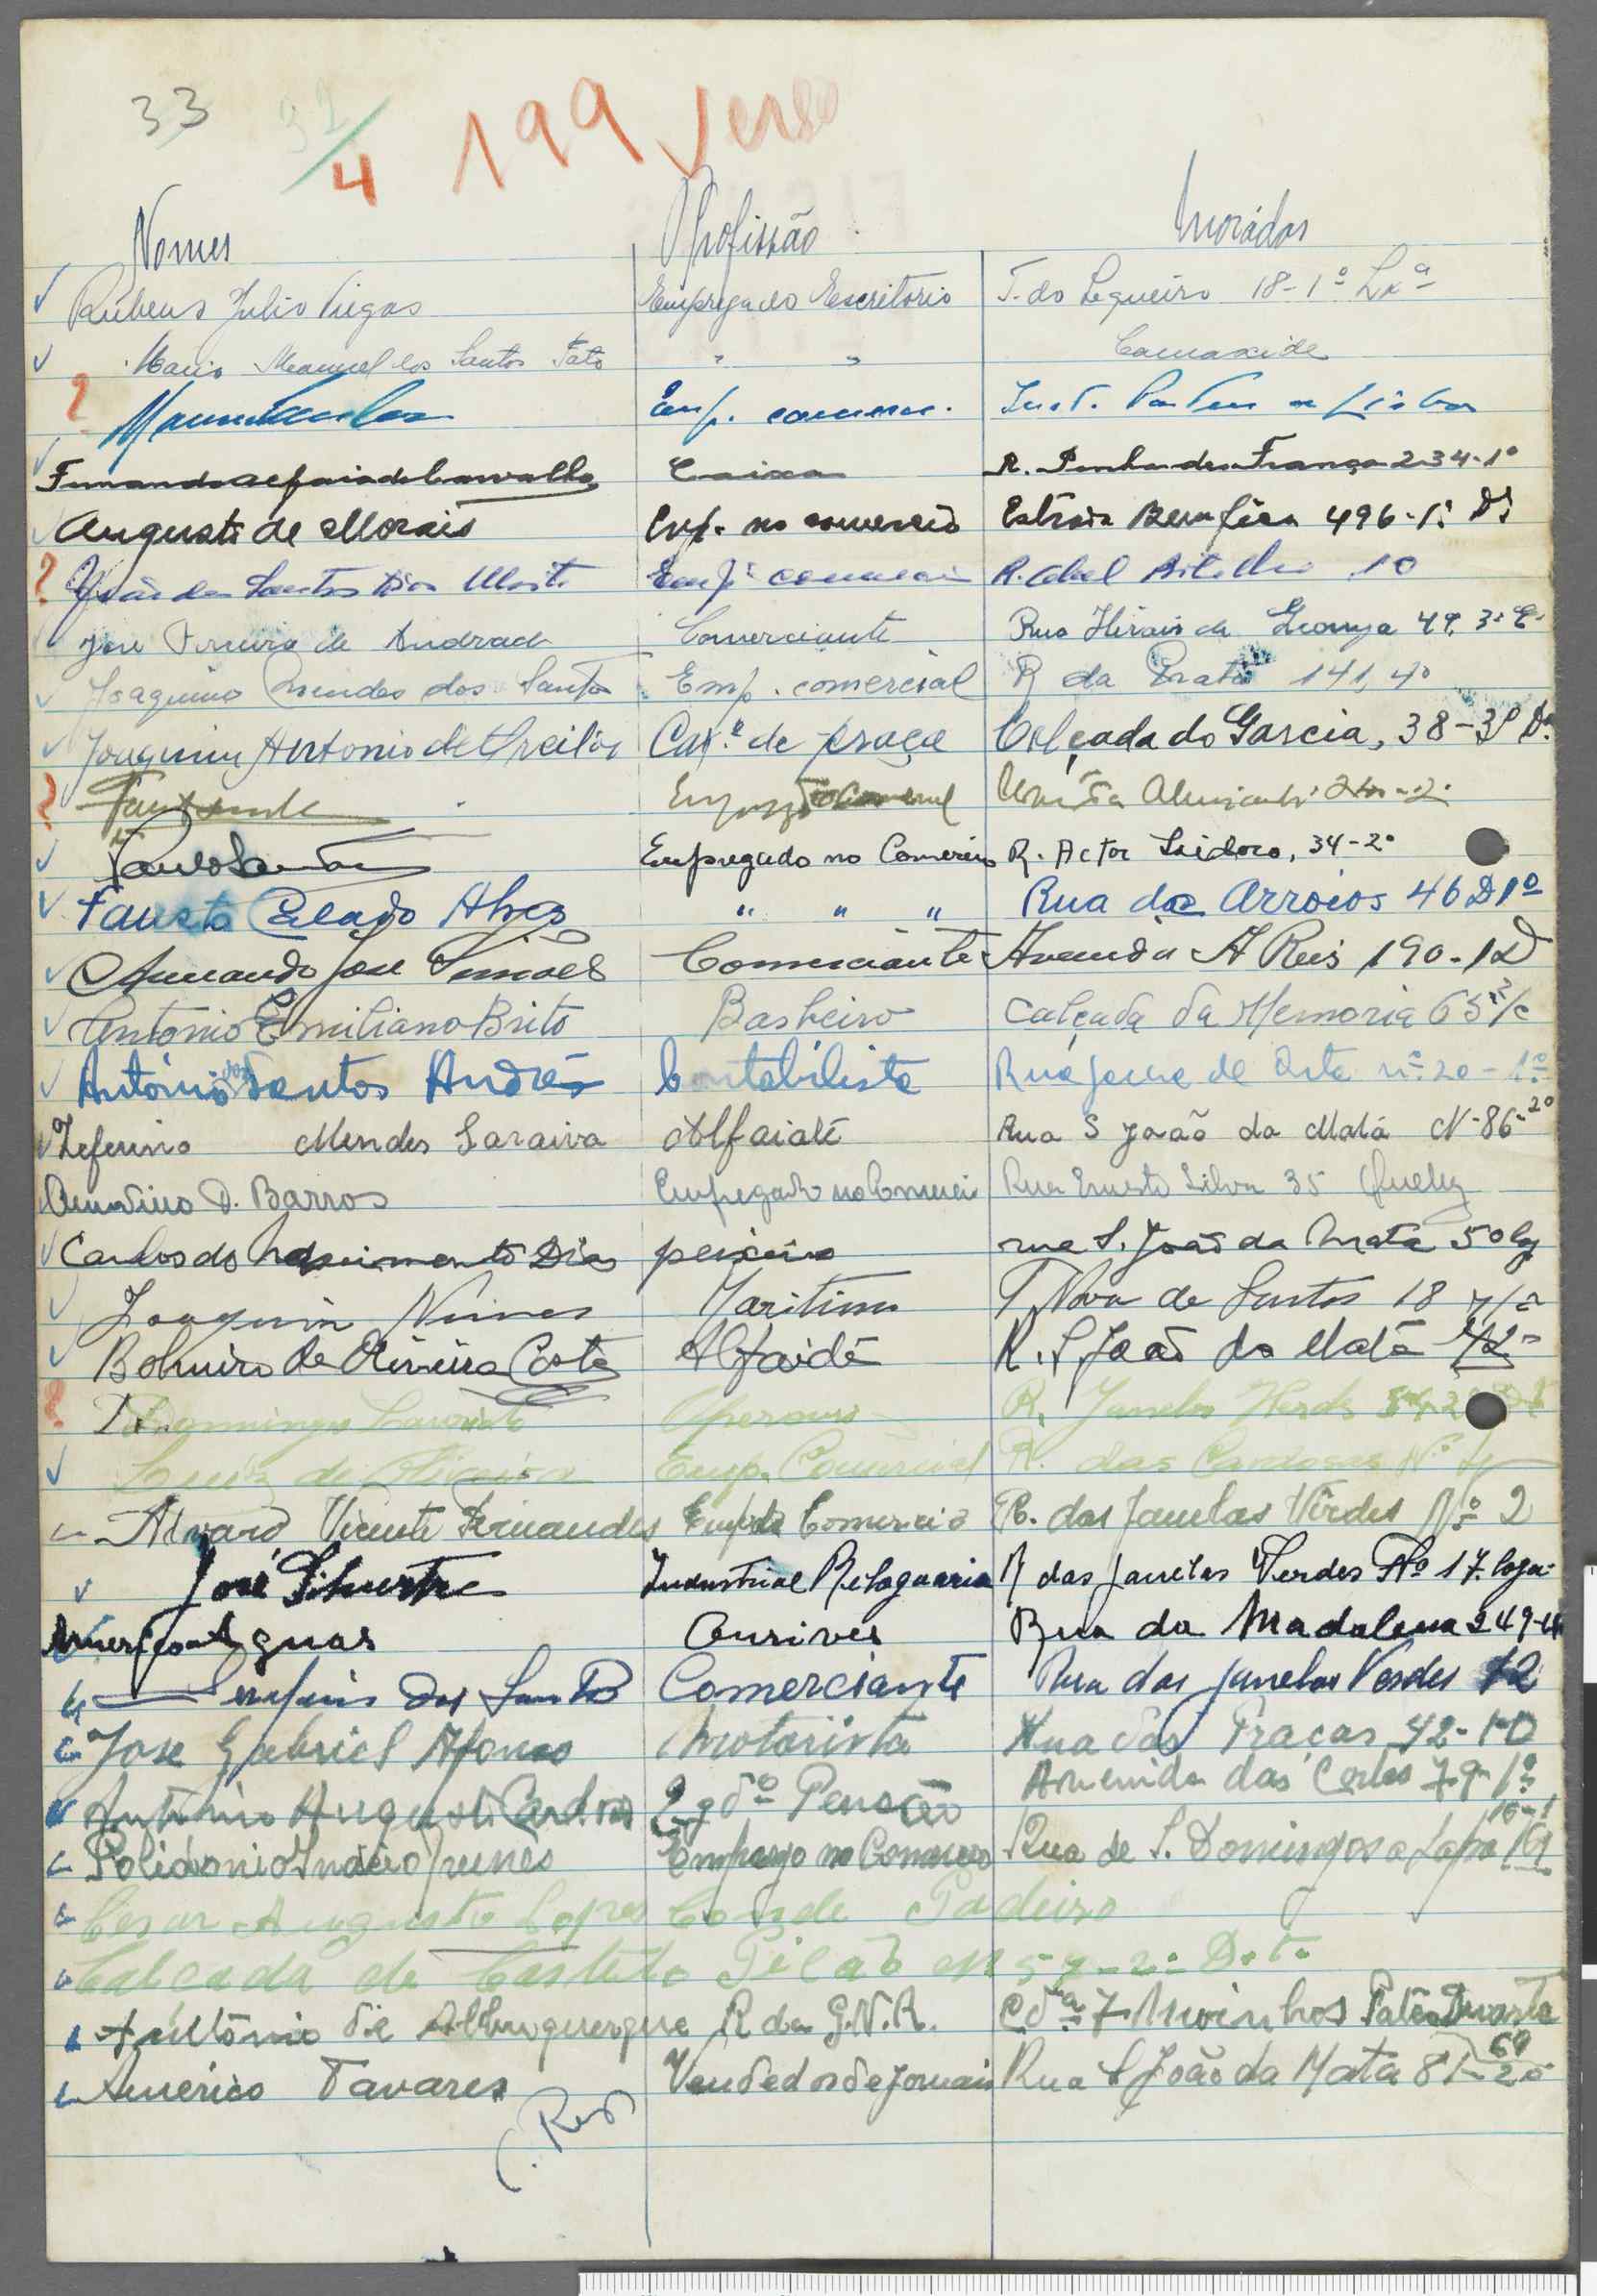 33 32/4 199 verso
Nomes Profissão Morádas
Rúbens Julio Viegas Empregado Escritorio T. do Sequeiro 18-1º Lxª
Mario Manuel dos Santos Pato " " Carnaxide
Emp. comerc. Lisboa
Fernando de Carvalho Caixa R. Penha de França 234-1º
Augusto de Morais Emp. no comercio Estrada Bemfica 496-1º Dº
João dos Santos Dias Emp. R. Abel Botelho 10
José Pereira de Andrade Comerciante Rua Heróis de Quionga 49, 3º E.
Joaquim Mendes dos Santos Emp. comercial R da Prata 141, 4º
Joaquim Antonio de Freitas Cax.º de praça Calçada do Garcia, 38-3º Dº
Empregado no Comercio R. Actor Isidoro, 34-2º
Fausto Calado Alves " " " Rua de Arroios 46 D 1º
Armando José Simões Comerciante Avenida A Reis 190-1 D
António Emiliano Brito Barbeiro Calçada da Memoria 65 r/c
António dos Santos André Contabilista Rua de nº 20-1º
Zeferino Mendes Saraiva Alfaiate Rua S João da Mata N-86-2º
D. Barros Empregado no Comercio Rua Ernesto Silva 35 Queluz
Carlos do Nascimento Dias peixeiro rua S. João da Mata 50
Joaquim Nunes Maritimo T. Nova de Santos 18
de Oliveira Costa Alfaiate R. S. João da Mata
Domingos Operario R. Janelas Verdes
Luiz de Oliveira Emp. Comercial R. das
Alvaro Vicente Fernandes Empº do Comercio R. das Janelas Verdes Nº 2
José Silvestre Industrial Relogoaria R das Janelas Verdes Nº 17 loja
Americo Aguas Ourives Rua da Madalena 249-4º
Serafim dos Santos Comerciante Rua das Janelas Verdes 12
José Gabriel Afonso Motorista Rua das Praças 42-1º D
António Augusto Cardoso Pensão Avenida das Cortes 79-1º
Polidonio Inácio Nunes Emprego no Comercio Rua de S. Domingos a Lapa
Cesar Augusto Lopes Conde Padeiro
Calçada de Castelo Picão Nº 57-2º D.to
António de Albuquerque R da G.N.R. Cdª 7 Moinhos Páteo Duarte
Américo Tavares Vendedor de Jornais Rua S João da Mata 81-2º